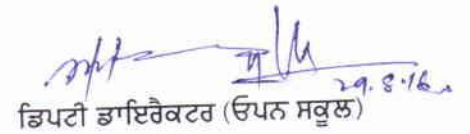 29.8.16
ਡਿਪਟੀ ਡਾਇਰੈਕਟਰ (ਓਪਨ ਸਕੂਲ)